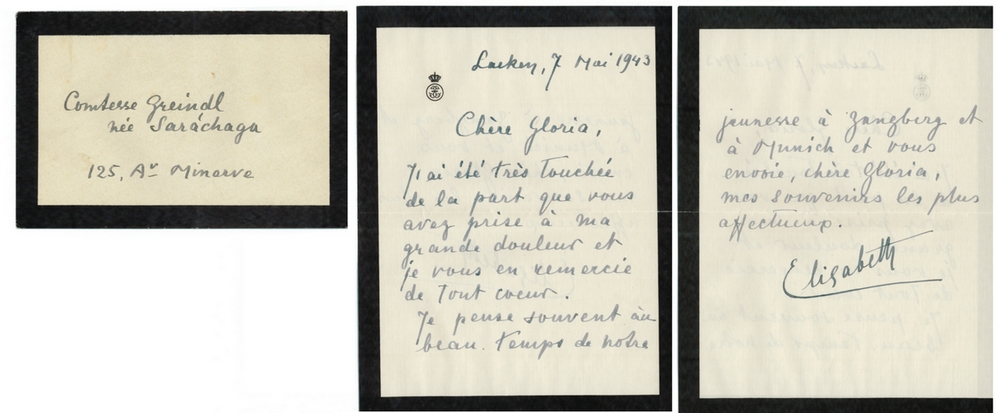 Comtesse Greindl
née Saráchaga
125, Av. Minerve
Laeken, 7 Mai 1943
Chère Gloria,
J'ai été très touchée
de la part que vous
avez prise à ma
grande douleur et
je vous en remercie
de tout coeur.
Je pense souvent au
beau temps de notre
jeunesse à Zangberg et
à Munich et vous
envoie, chère Gloria,
mes souvenirs les plus
affectueux.
Elisabeth